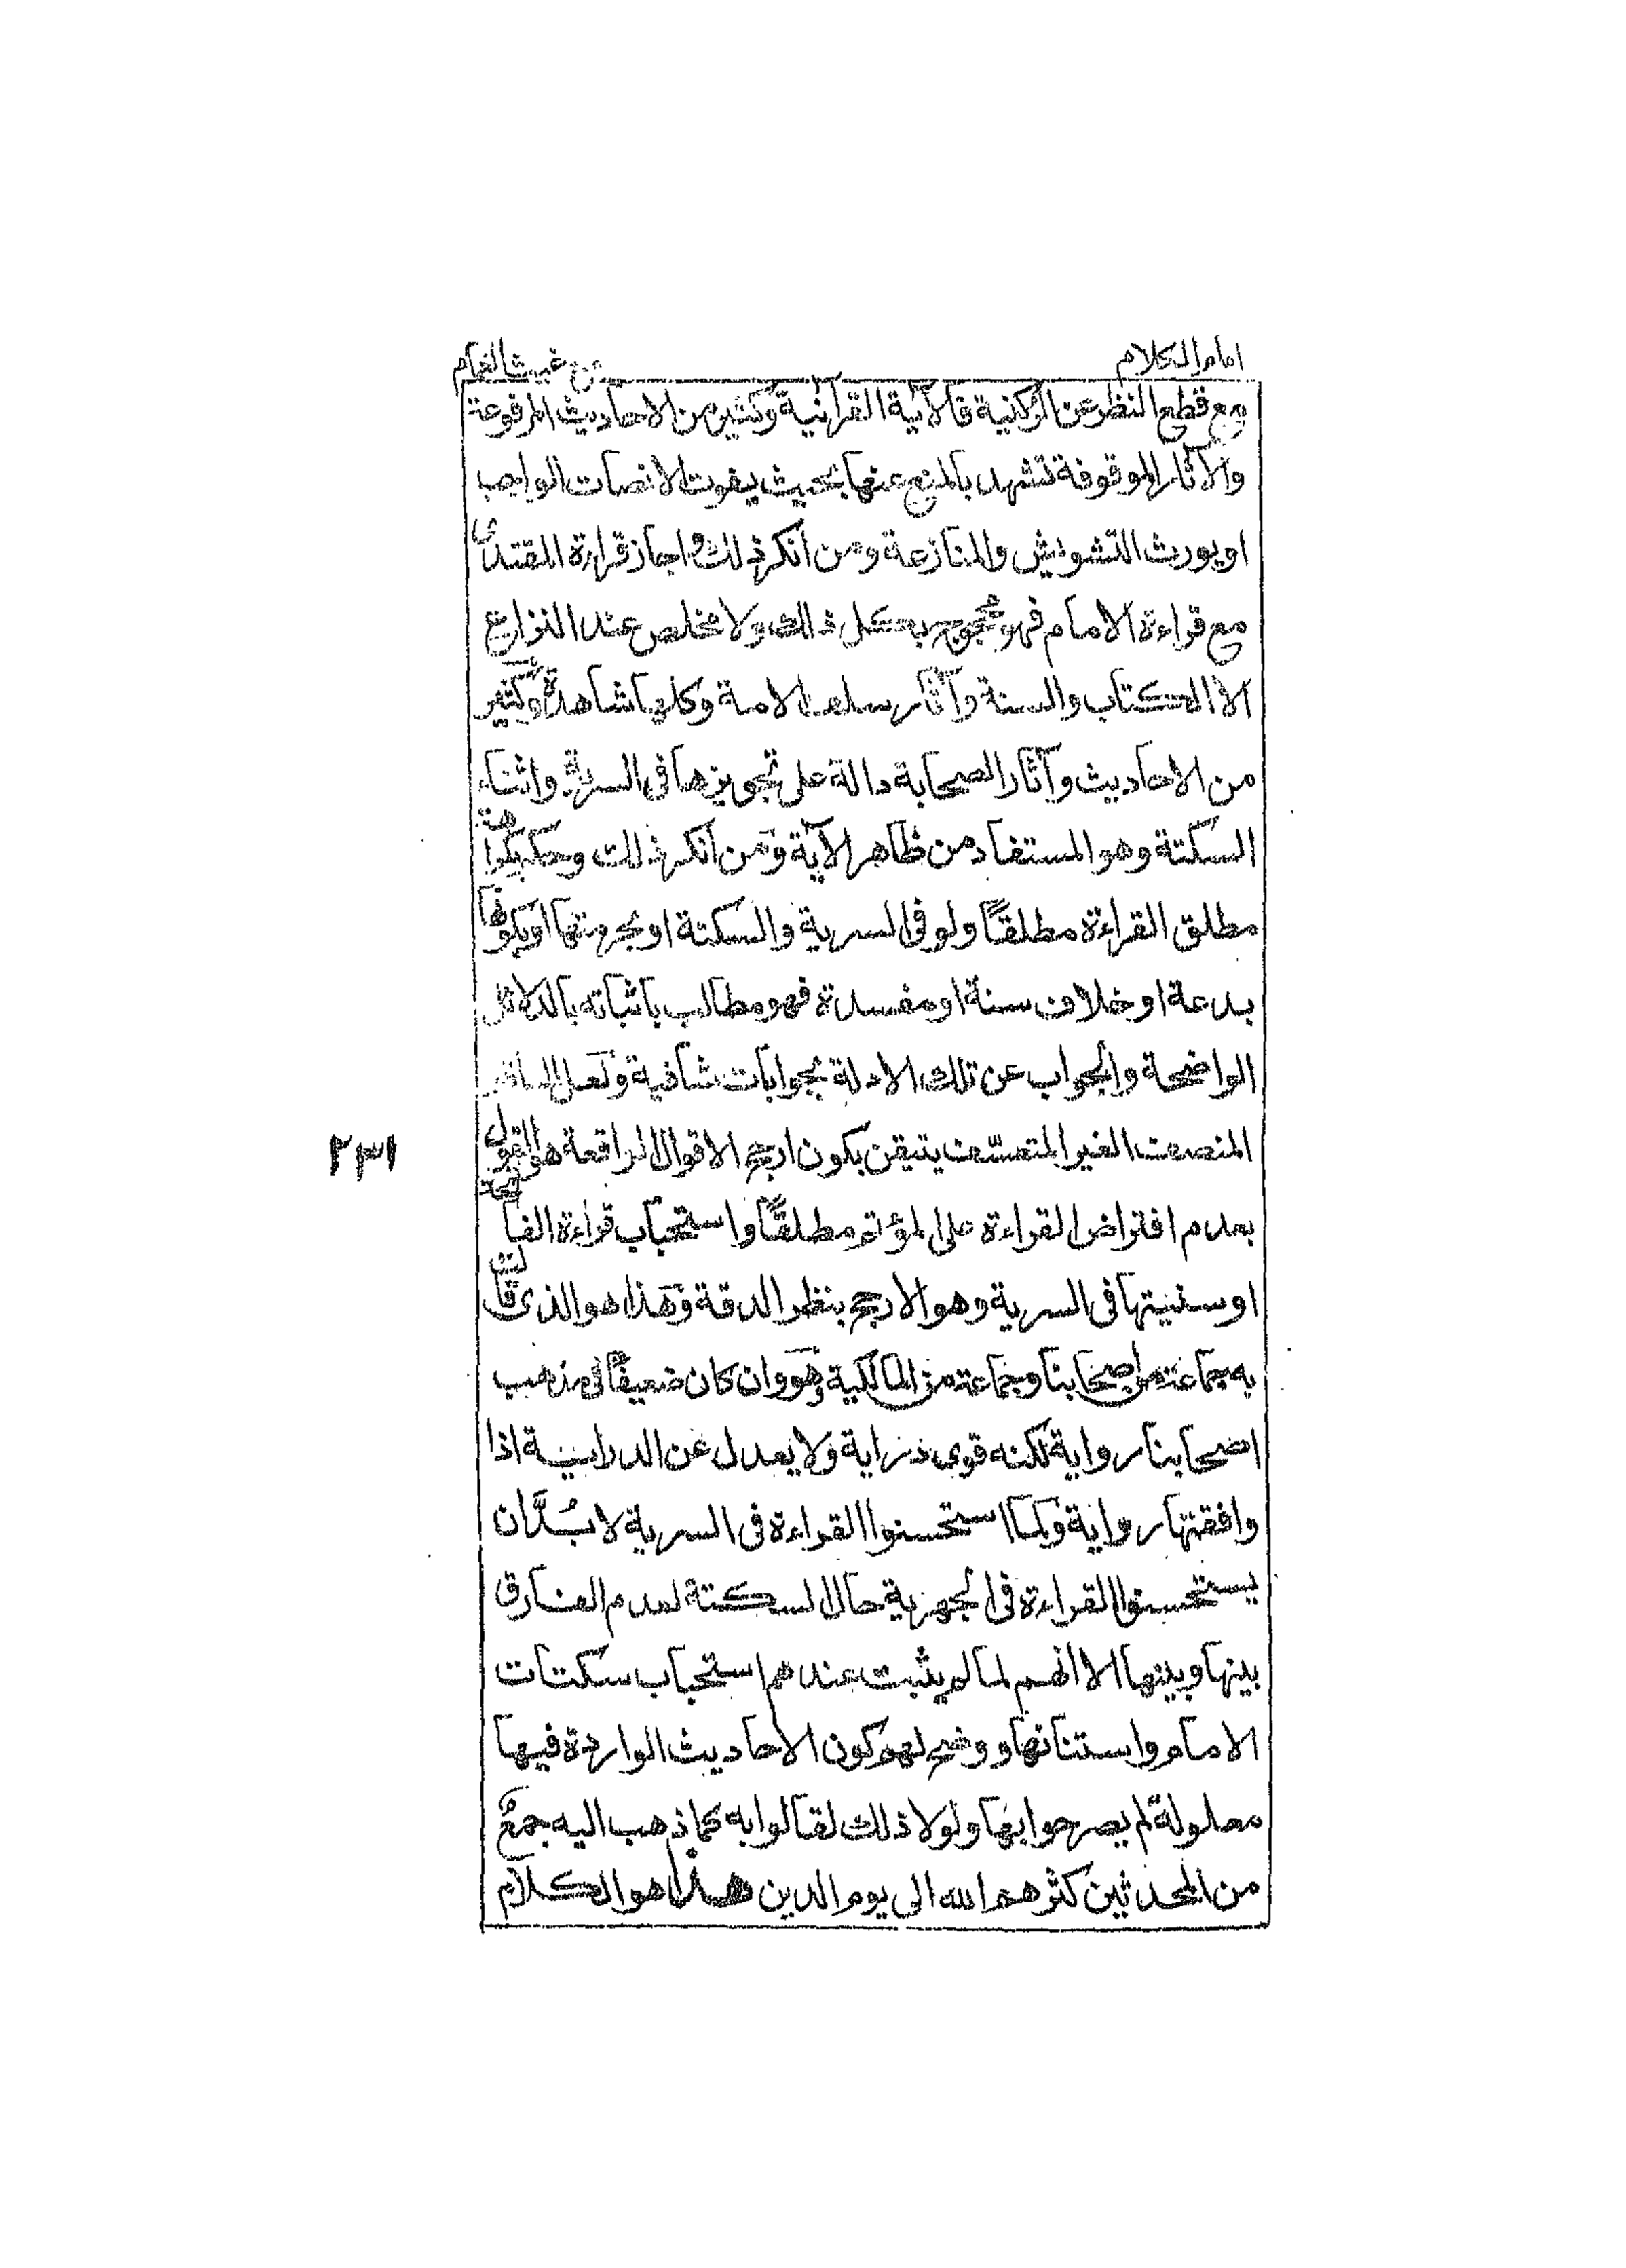 امام الكلام
مع غيث الغمام
مع قطع النظر عن الركنية فالآية القرآنية وكثير من الاحاديث المرفوعة
والآثار الموقوفة تشهد بالمنع عنها بحيث يفوت الانصات الواجب
او يورث التشويش والمنازعة ومن انكر ذلك واجاز قراءة المقتدى
مع قراءة الامام فهو محجوج بكل ذلك ولا مخلص عند النزاع
الا الكتاب والسنة وآثار سلف الامة وكلها شاهدة وكثير
من الاحاديث وآثار الصحابة دالة على تجويزها فى السرية واثناء
السكتة وهو المستفاد من ظاهر الآية ومن انكر ذلك وحكم بكراهة
مطلق القراءة مطلقًا ولو فى السرية والسكتة او بحرمتها او بكونها
بدعة او خلاف سنة او مفسدة فهو مطالب باثباته بالدلائل
الواضحة والجواب عن تلك الادلة بجوابات شافية ولعل الماهر
المنصف الغير المتعسّف يتيقن بكون ارجح الاقوال الواقعة هو القول
بعدم افتراض القراءة على المؤتم مطلقًا واستحباب قراءة الفاتحة
او سنيتها فى السرية وهو الارجح بنظر الدقة وهذا هو الذى قالت
به جماعة من اصحابنا وجماعة من المالكية وهو وان كان ضعيفًا فى مذهب
اصحابنا رواية لكنه قوى دراية ولا يعدل عن الدراية اذا
وافقتها رواية وكما استحسنوا القراءة فى السرية لا بُدَّ ان
يستحسنوا القراءة فى الجهرية حال السكتة لعدم الفارق
بينها وبينها الا انهم لما لم يثبت عندهم استحباب سكتات
الامام واستنانها ووضح لهم كون الاحاديث الواردة فيها
معلولة لم يصرحوا بها ولولا ذلك لقالوا به كما ذهب اليه جمعٌ
من المحدثين كثرهم الله الى يوم الدين هذا هو الكلام
٢٣١